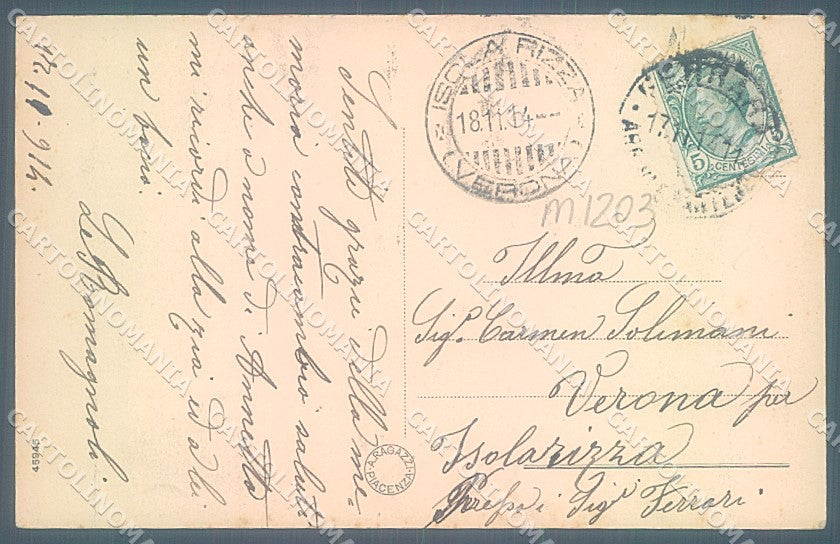 17.11.914.
Sentite grazie della me-
moria contraccambio saluti
anche a nome di Annetta
mi ricordi alla zia ed a lei
un bacio.
G. Romagnoli.
ISOLA RIZZA
18.11.14
(VERONA)
17.11.14
5 CENTESIMI 5
m1203
Illma
Sig.a Carmen Solimani
Verona per
Isolarizza
Presso i Sig.i Ferrari
A. RAGAZZI
PIACENZA
46945
CARTOLINOMANIA